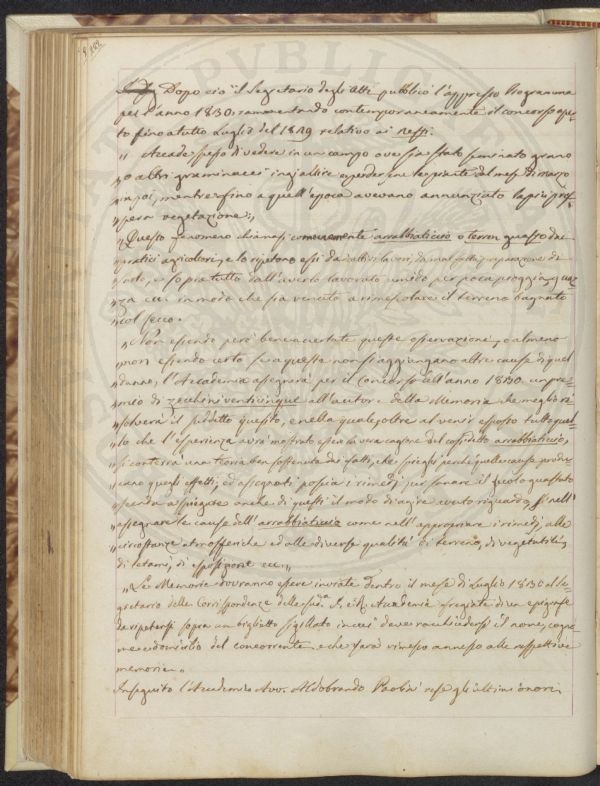 Dopo ciò il Segretario degli Atti pubblicò l'appresso Programma
per l'anno 1830, rammentando contemporaneamente il concorso aper-
to fino a tutto Luglio del 1829 relativo ai Nessi.
„ Accade spesso di vedere in un campo ove sia stato seminato grano
„ o altri graminacei ingiallire e perdersene le piante dal mese di marzo
„ in poi, mentre fino a quell'epoca avevano annunziato la più pros-
„ pera vegetazione „
„ Questo fenomeno chiamasi comunemente arrabbiaticcio o terren guasto dai
„ pratici agricoltori, e lo ripetono essi da cattivi lavori, da mal fatta preparazione di
„ suolo, e sopratutto dall'averlo lavorato umido per poca pioggia, o guaz-
„ za cui in modo che sia venuto a rimescolarsi il terreno bagnato
„ col secco.
„ Non essendo però bene accertate queste osservazione, o almeno
„ non essendo certo se a questa non si aggiungano altre cause di quel
„ danno, l'Accademia assegnerà per il Concorso dell'anno 1830 un pre-
„ mio di zecchini venticinque all'autore della Memoria che meglio ri-
„ solverà il suddetto quesito, e nella quale, oltre al venir esposto tutto quel-
„ lo che l'esperienza avrà mostrato esser la vera cagione del cosìdetto arrabbiaticcio,
„ si conterrà una teoria ben sostenuta dai fatti, che spieghi perchè quelle cause produ-
„ cano quegli effetti, ed assegnati poscia i rimedj per sanare il suolo guastato
„ scenda a spiegare anche di questi il modo di agire avuto riguardo, sì nell'
„ assegnare le cause dell'arrabbiaticcio come nell'appropriare i rimedj, alle
„ circostanze atmosferiche ed alle diverse qualità di terreno, di vegetabili,
„ di letami, di esposizione ec. „
„ Le Memorie dovranno essere inviate dentro il mese di Luglio 1830 al Se-
gretario delle Corrispondenze della I. e R. Accademia fregiate di un epigrafe
da ripetersi sopra un biglietto sigillato in cui deve racchiudersi il nome, cogno-
me e domicilio del concorrente, e che sarà rimesso annesso alle respettive
memorie.
In seguito l'Accademico Avv. Aldobrando Paolini rese gli ultimi onori